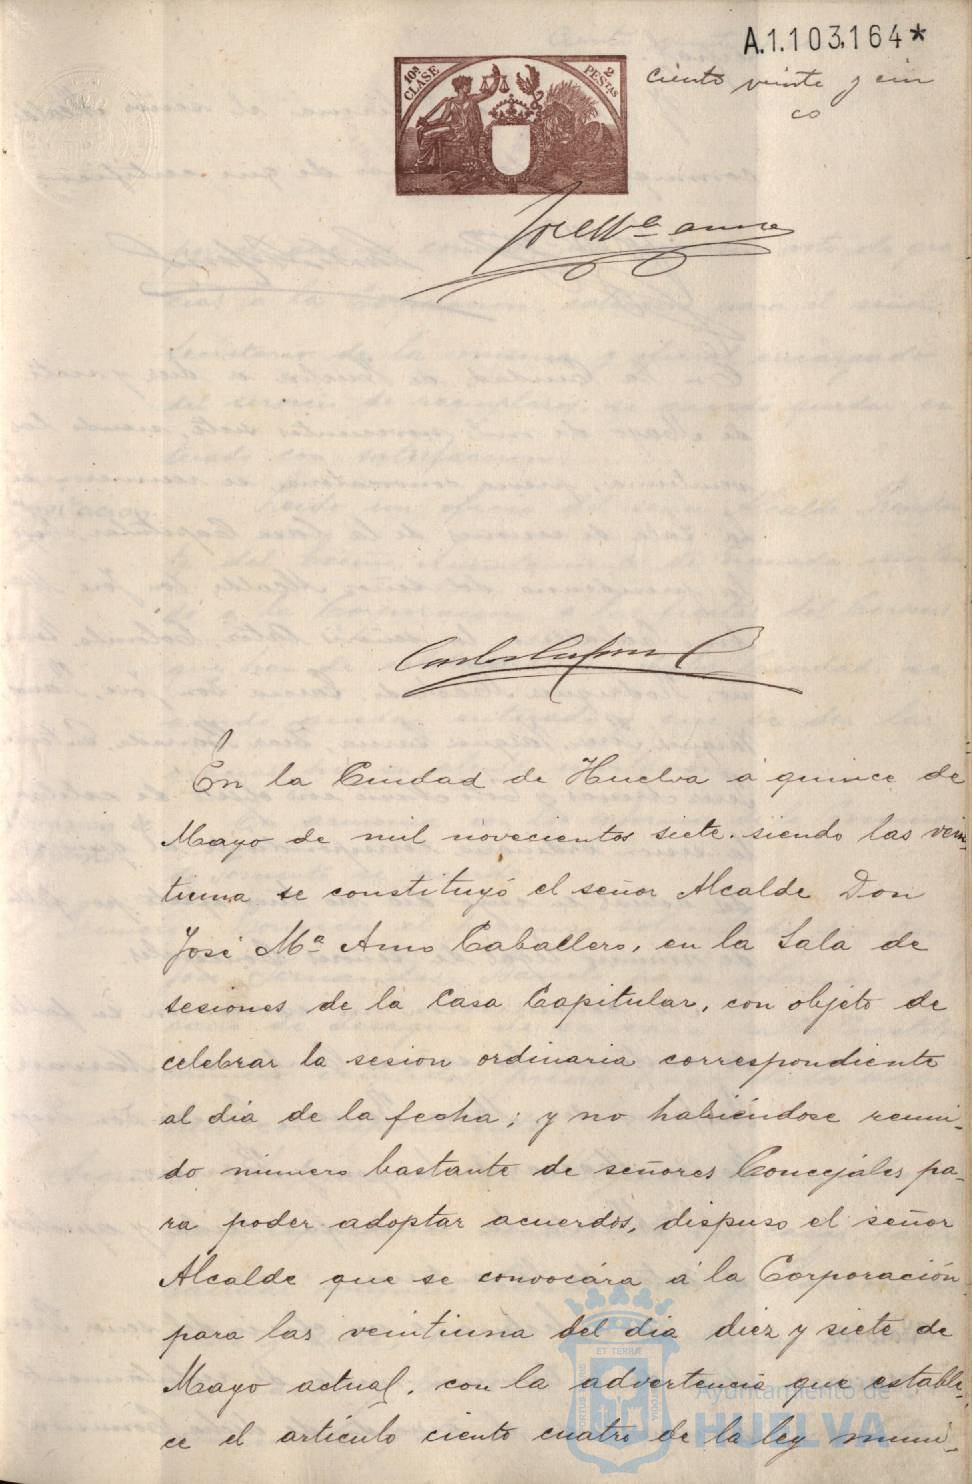 A.1.103,164*
ciento veinte y cin
co
10ª CLASE
2 PESTAS
José Mª Amo
En la Ciudad de Huelva á quince de
Mayo de mil novecientos siete. siendo las vein-
tiuna se constituyó el señor Alcalde Don
José Mª Amo Caballero, en la Sala de
sesiones de la Casa Capitular, con objeto de
celebrar la sesion ordinaria correspondiente
al dia de la fecha; y no habiéndose reuni-
do número bastante de señores Concejales pa-
ra poder adoptar acuerdos, dispuso el señor
Alcalde que se convocára á la Corporación
para las veintiuna del dia diez y siete de
Mayo actual, con la advertencia que estable-
ce el artículo ciento cuatro de la ley muni-
ET TERRÆ
Ayuntamiento de
HUELVA